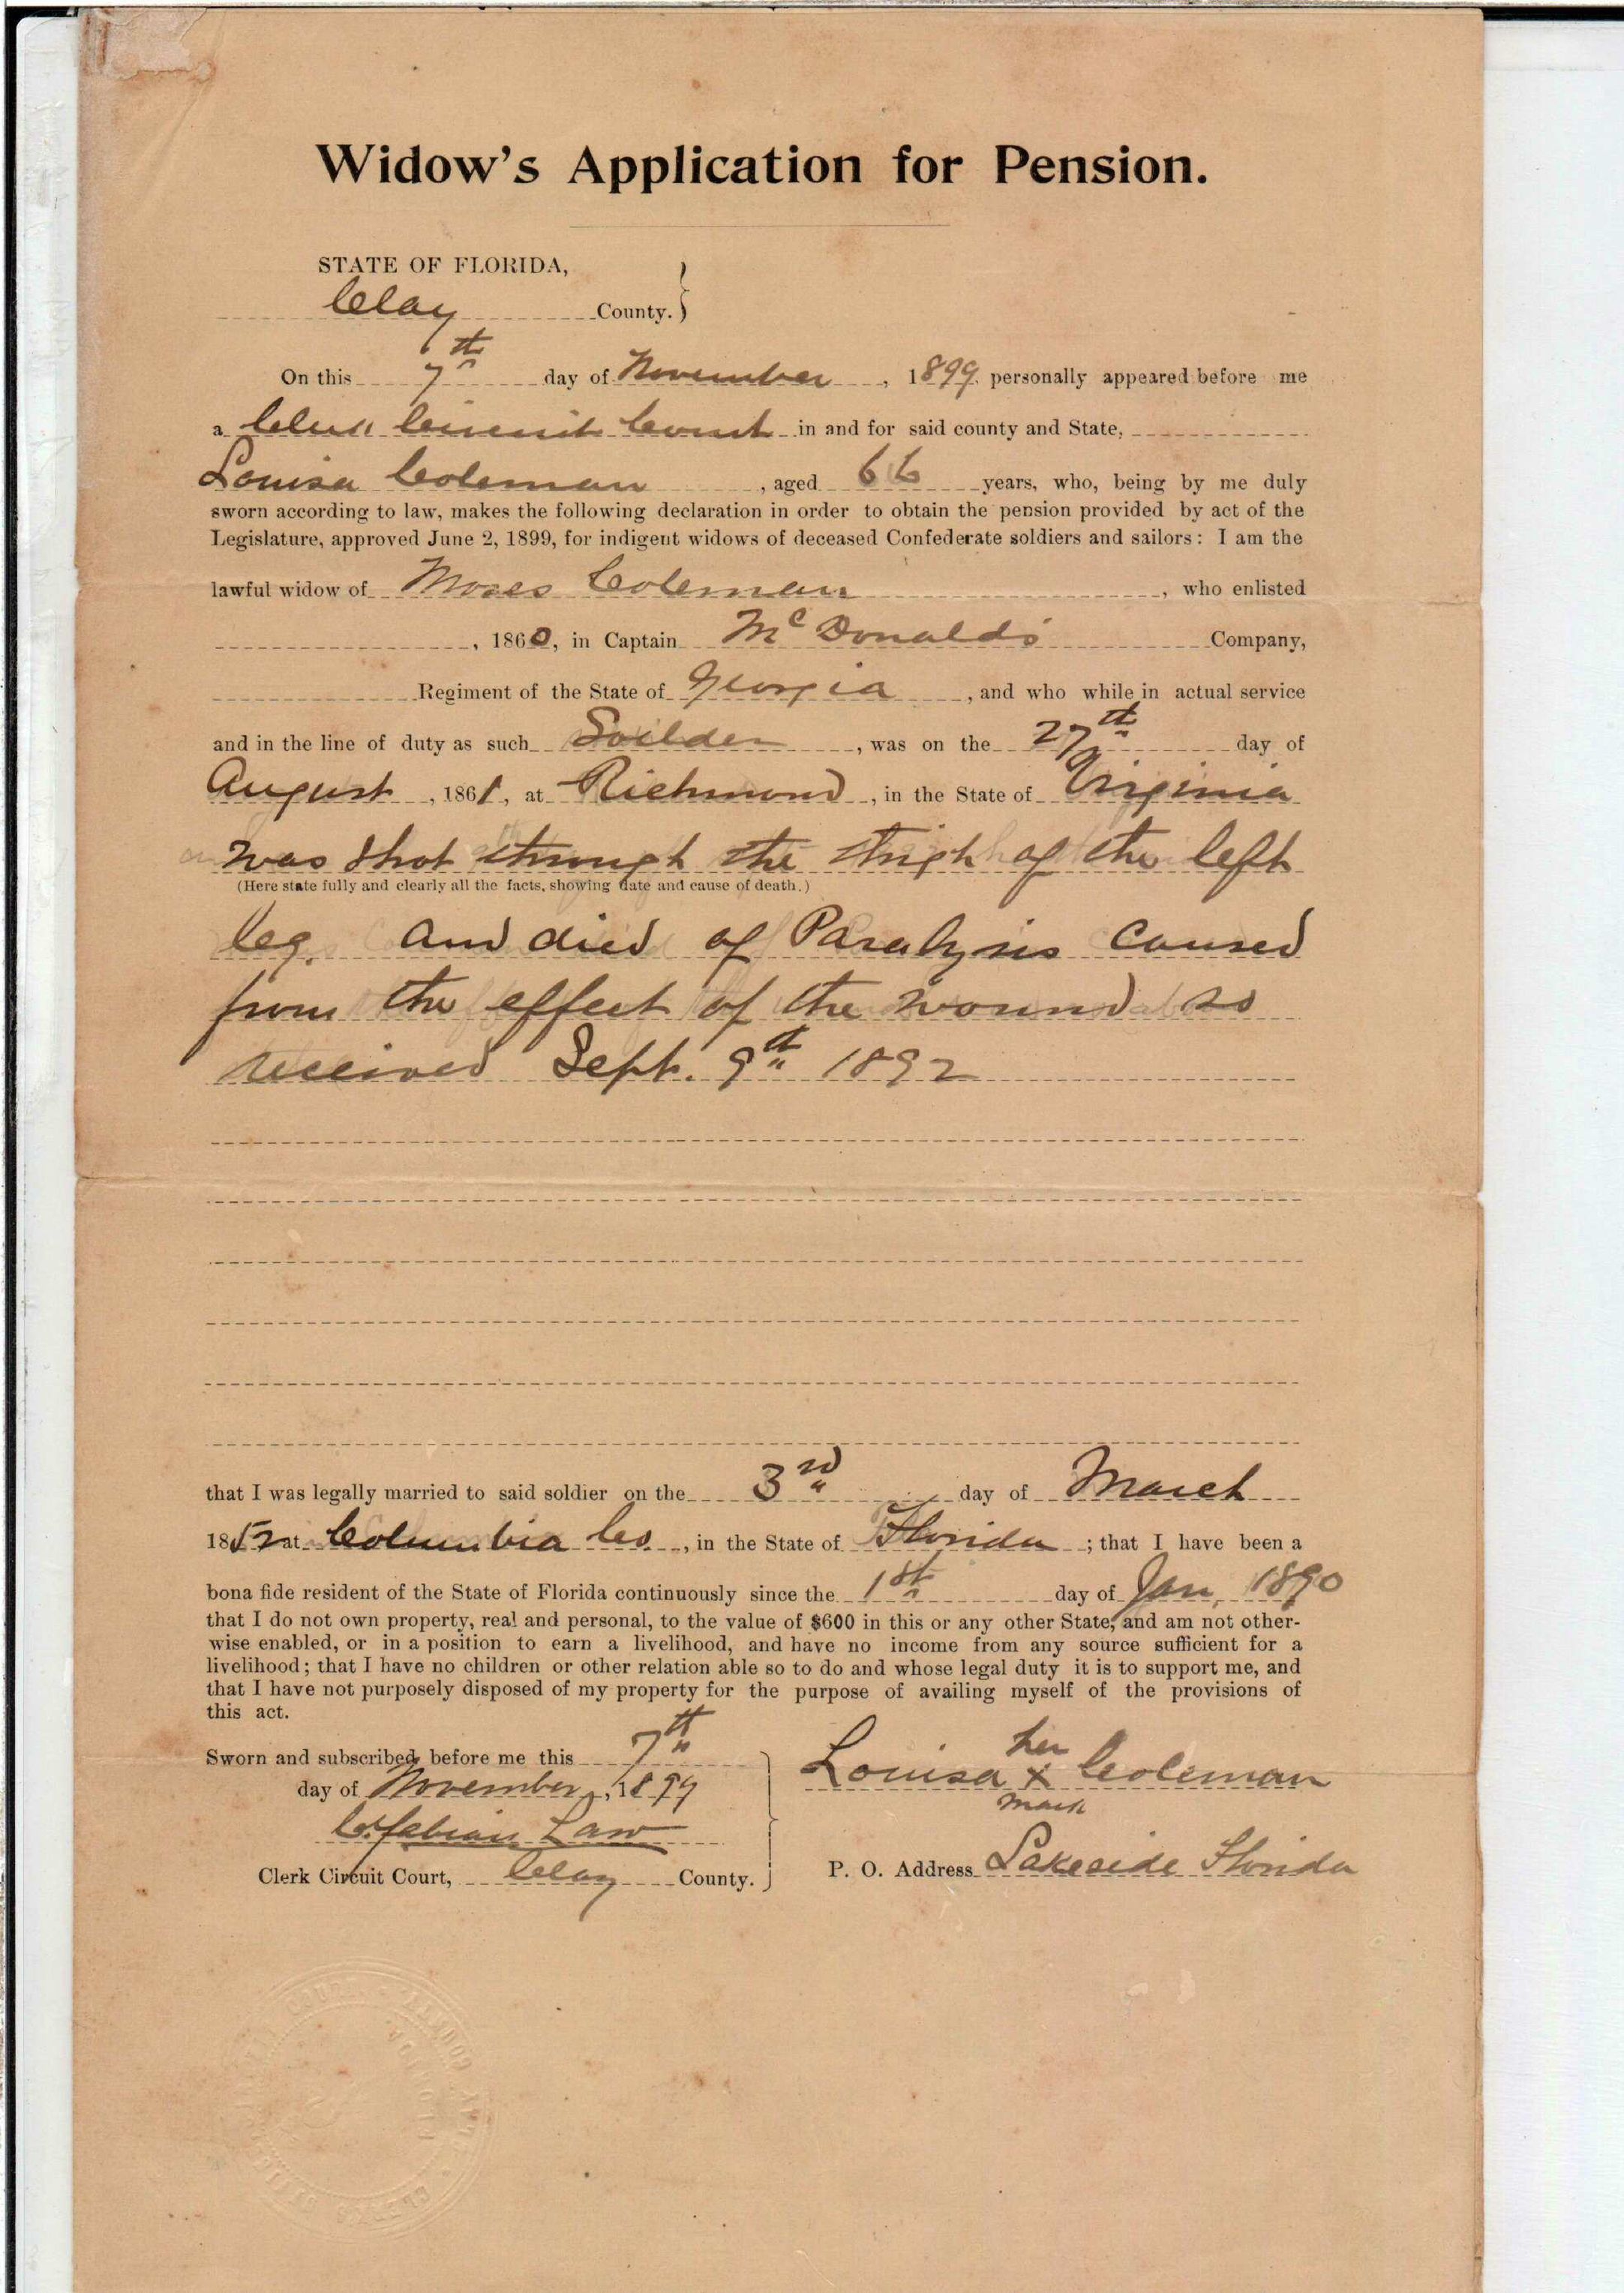 Widow's Application for Pension.
STATE OF FLORIDA,
Clay County. }
On this 7th day of November, 1899, personally appeared before me
a Clerk Circuit Court in and for said county and State,
Louisa Coleman, aged 66 years, who, being by me duly
sworn according to law, makes the following declaration in order to obtain the pension provided by act of the
Legislature, approved June 2, 1899, for indigent widows of deceased Confederate soldiers and sailors: I am the
lawful widow of Moses Coleman, who enlisted
, 1860, in Captain McDonalds Company,
Regiment of the State of Georgia, and who while in actual service
and in the line of duty as such Soilder, was on the 27th day of
August, 1861, at Richmond, in the State of Virginia
was shot through the thigh of the left
(Here state fully and clearly all the facts, showing date and cause of death.)
leg. and died of Paralysis caused
from the effect of the wound so
received Sept. 9th 1892
that I was legally married to said soldier on the 3rd day of March
1852 at Columbia Co, in the State of Florida; that I have been a
bona fide resident of the State of Florida continuously since the 1st day of Jan, 1890
that I do not own property, real and personal, to the value of $600 in this or any other State, and am not other-
wise enabled, or in a position to earn a livelihood, and have no income from any source sufficient for a
livelihood; that I have no children or other relation able so to do and whose legal duty it is to support me, and
that I have not purposely disposed of my property for the purpose of availing myself of the provisions of
this act.
Sworn and subscribed before me this 7th
day of November, 1899
C. Fabian Law
Clerk Circuit Court, Clay County. }
her
Louisa x Coleman
mark
P. O. Address Lakeside Florida